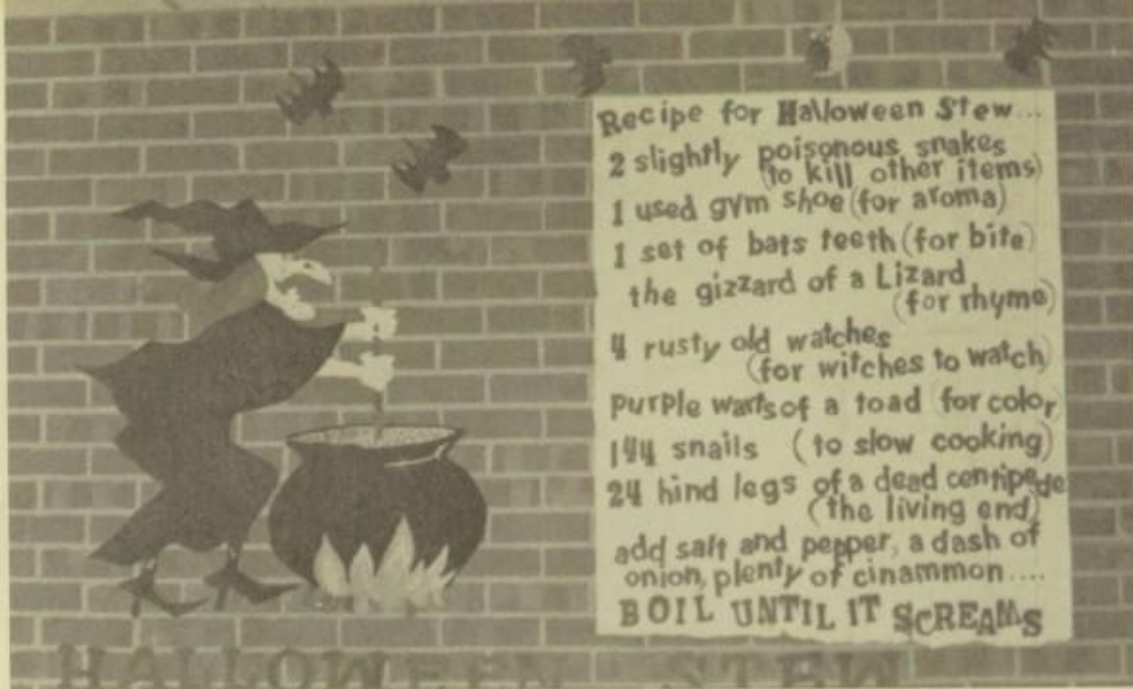 Recipe for Halloween Stew...
2 slightly poisonous snakes
(to kill other items)
1 used gym shoe (for aroma)
1 set of bats teeth (for bite)
the gizzard of a Lizard
(for rhyme)
4 rusty old watches
(for witches to watch)
purple warts of a toad (for color)
144 snails (to slow cooking)
24 hind legs of a dead centipede
(the living end)
add salt and pepper, a dash of
onion, plenty of cinammon....
BOIL UNTIL IT SCREAMS
HALLOWEEN STEW